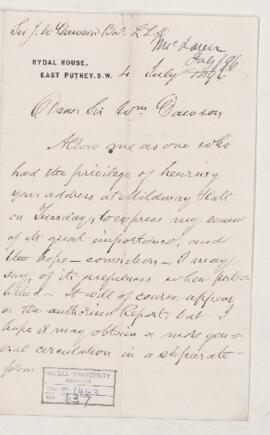 Sir J. W. Dawson Bart. LL.D.
McLaren
July /96
RYDAL HOUSE,
EAST PUTNEY, S.W.
4 July 1896
Dear Sir Wm Dawson
Allow me as one who
had the privilege of hearing
your address at Mildmay Hall
on Tuesday, to express my sense
of its great importance, and
the hope – conviction – I may
say of its usefulness when pub-
lished – It will of course appear
in the authorized Report, but I
hope it may obtain a more gen-
eral circulation in a separate
form.
McGILL UNIVERSITY
ARCHIVES
1463
REF. 63